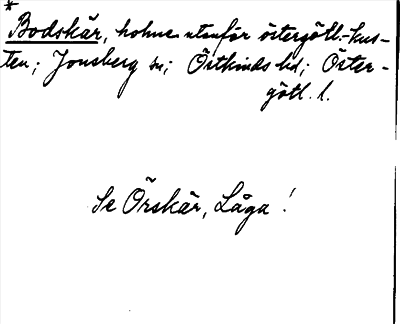 *
Bodskär, holme utanför östergötl.-kus-
ten; Jonsberg sn; Östkinds hd; Öster-
götl. l.
Se Örskär, Låga!